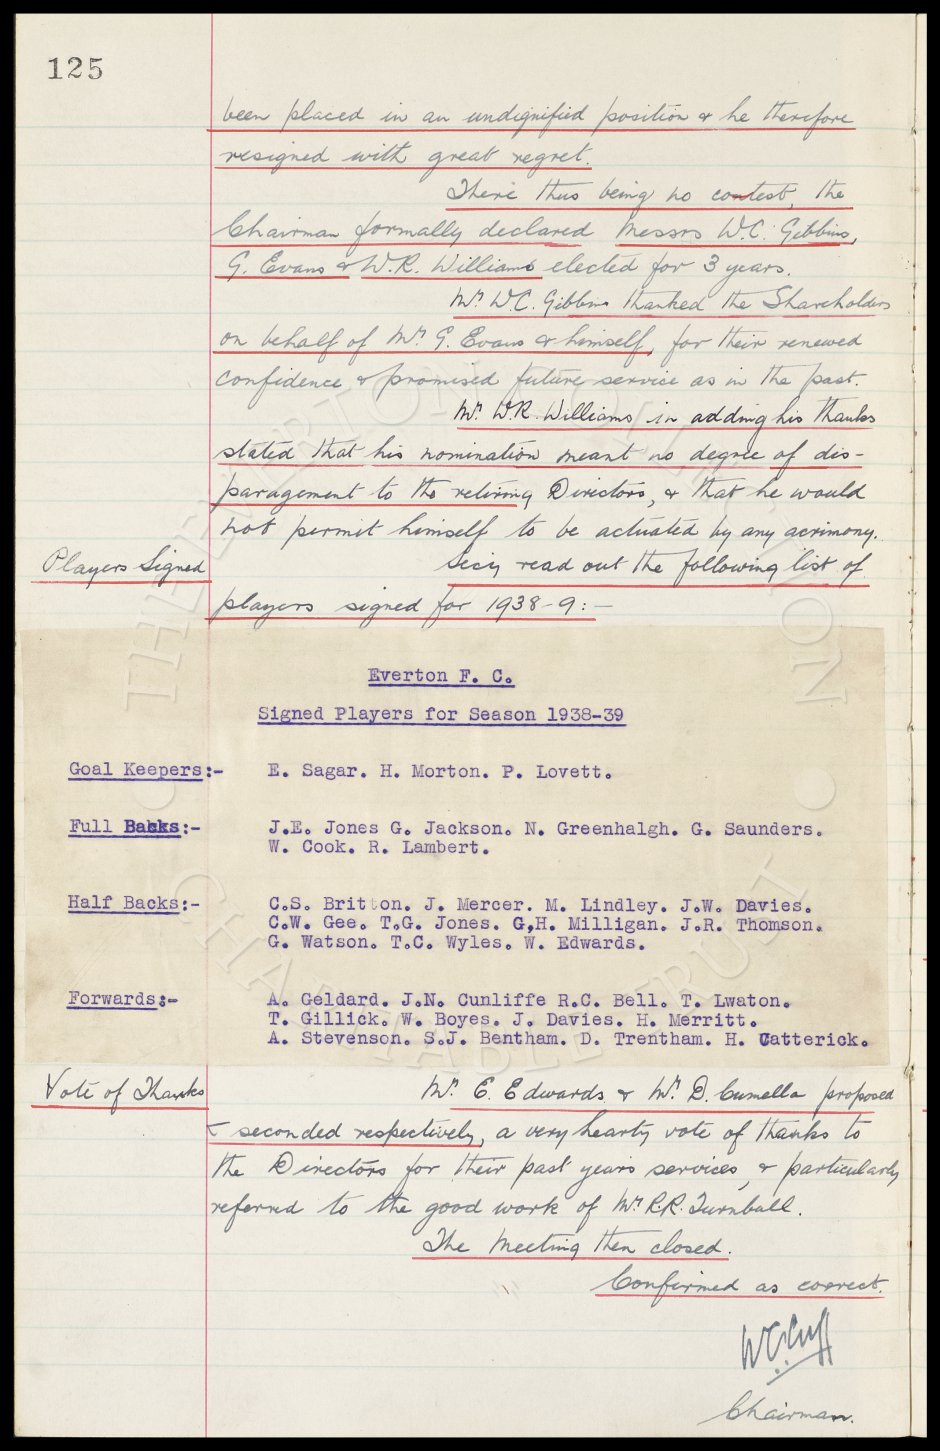 125
been placed in an undignified position & he therefore
resigned with great regret.
There thus being no contest, the
Chairman formally declared Messrs W.C. Gibbins,
G. Evans & W.R. Williams elected for 3 years.
Mr. W.C. Gibbins thanked the Shareholders
on behalf of Mr. G. Evans & himself, for their renewed
confidence & promised future service as in the past.
Mr. W.R. Williams in adding his thanks
stated that his nomination meant no degree of dis-
paragement to the retiring Directors, & that he would
not permit himself to be actuated by any acrimony.
Players Signed Secy read out the following list of
players signed for 1938-9:-
Everton F. C.
Signed Players for Season 1938-39
Goal Keepers:- E. Sagar. H. Morton. P. Lovett.
Full Backs:- J.E. Jones G. Jackson. N. Greenhalgh. G. Saunders.
W. Cook. R. Lambert.
Half Backs:- C.S. Britton. J. Mercer. M. Lindley. J.W. Davies.
C.W. Gee. T.G. Jones. G,H. Milligan. J.R. Thomson.
G. Watson. T.C. Wyles. W. Edwards.
Forwards:- A. Geldard. J.N. Cunliffe R.C. Bell. T. Lwaton.
T. Gillick. W. Boyes. J. Davies. H. Merritt.
A. Stevenson. S.J. Bentham. D. Trentham. H. Catterick.
Vote of Thanks Mr. E. Edwards & Mr. D. Cumella proposed
& seconded respectively, a very hearty vote of thanks to
the Directors for their past years services, & particularly
referred to the good work of Mr. R.R. Turnbull.
The Meeting then closed.
Confirmed as correct.
W.C. Cuff
Chairman.
THE EVERTON COLLECTION CHARITABLE TRUST